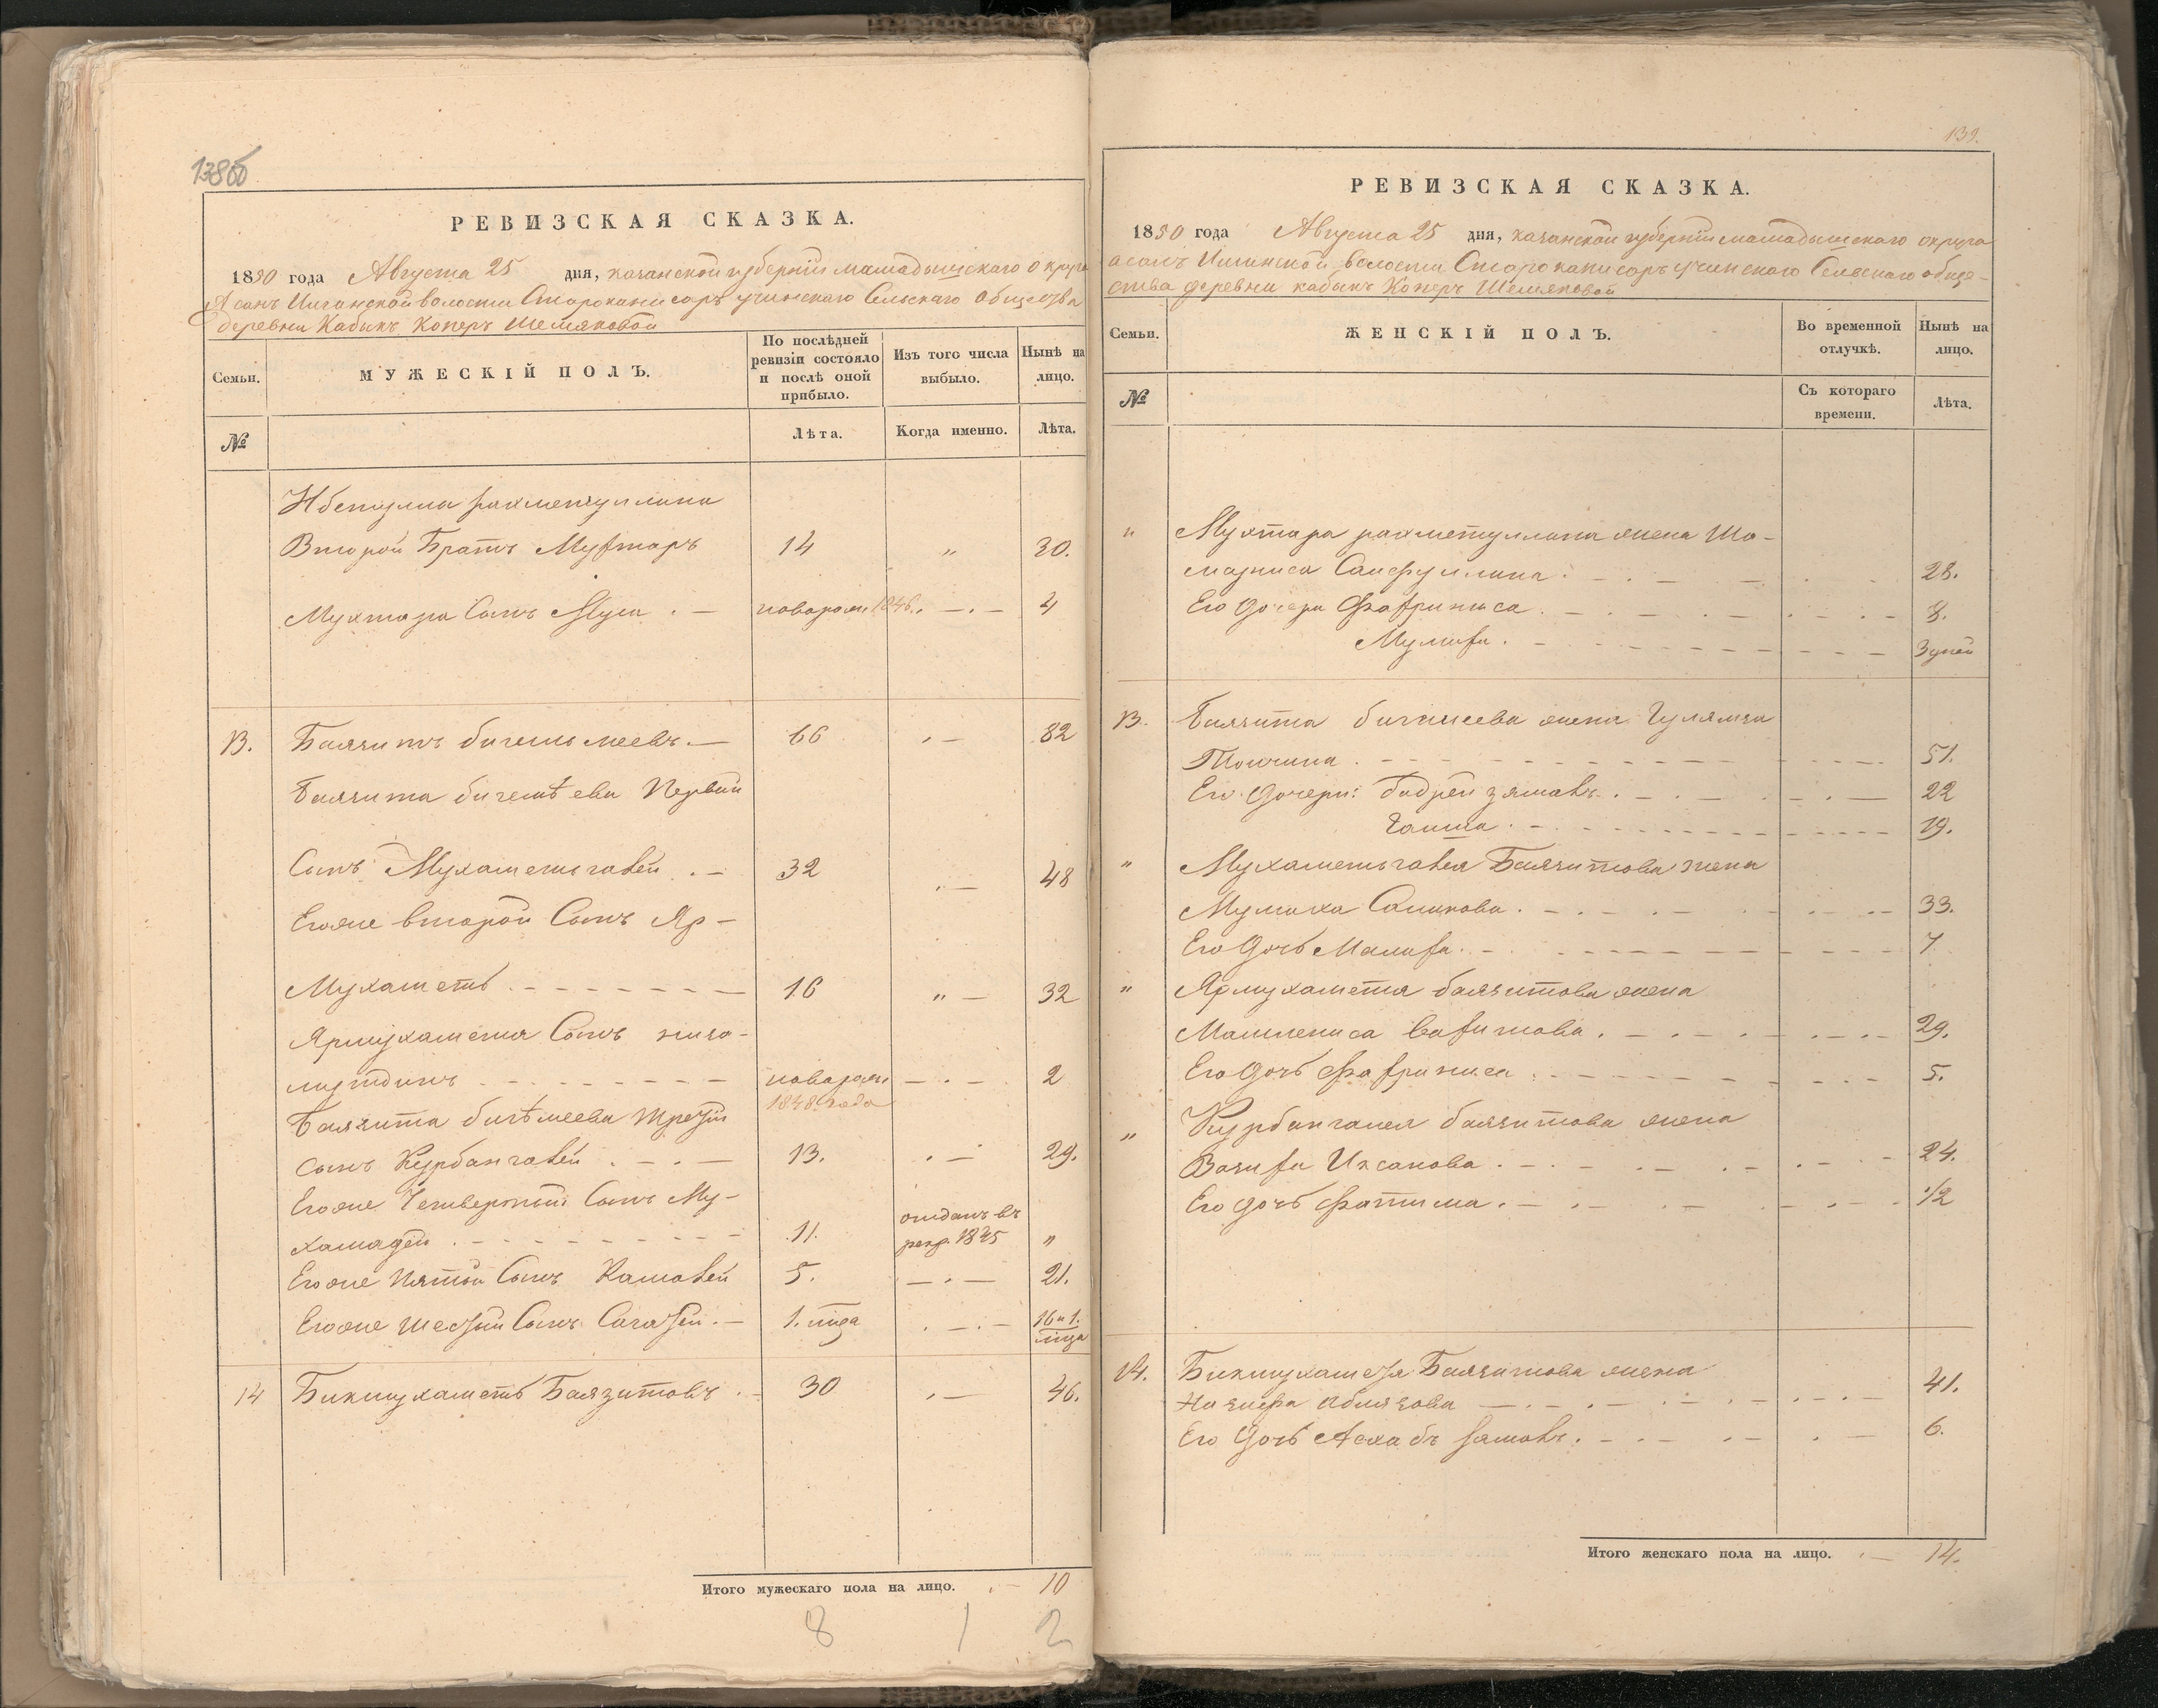 138об
РЕВИЗСКАЯ СКАЗКА.
1850 года Августа 25 дня, казанской губерніи мамадышскаго округа
Асанъ Илгинской волости Старокани сарѣ учинскаго Сельскаго Общества
деревни Кабыкъ Коперъ Шемяковой
Семьи.
МУЖЕСКІЙ ПОЛЪ.
По послѣдней ревизіи состояло и послѣ оной прибыло.
Изъ того числа выбыло.
Нынѣ на лицо.
№
Лѣта.
Когда именно.
Лѣта.
рахметуллина
Второй Братъ Мухтаръ 14 „ 30.
Мухтара Сынъ Муса . — новорож. 1846. . — . — 4
13. Баязитъ бигишмеевъ. — 66 . — 82
Баязита бигемѣева Первый
Сынъ Мухаметьгалей . — 32 . — 48
Егоже второй Сынъ Яр-
Мухаметь 16 „ — 32
Ярмухаметя Сынъ низа-
мутдинъ новорож. — . — 2
1848. года
Баязита бигѣмеева третій
сынъ Курбангалей . — . — 13. . — 29.
Егоже Четвертый Сынъ Му-
хамадей 11. отданъ въ рекр. 1845 „
Егоже Пятый Сынъ Камалей 5. — . — 21.
Егоже Шестый Сынъ . — 1. мца . — . — 16 и 1. мца
14 Бикмухаметь Баязитовъ . — 30 . — 46.
Итого мужескаго пола на лицо. . — 10
8 1 2
139.
РЕВИЗСКАЯ СКАЗКА.
1850 года Августа 25 дня, казанской губерніи мамадышскаго округа
асанъ Илгинской волости Старокани сарѣ учинскаго Сельскаго обще-
ства деревни кабыкъ Коперъ Шемяковой
Семьи.
ЖЕНСКІЙ ПОЛЪ.
Во временной отлучкѣ.
Нынѣ на лицо.
№
Съ котораго времени.
Лѣта.
„ Мухтара рахметуллина жена Ша-
Саифуллина 28.
Его дочери Фахриниса 8.
Мулиха 3 дней
13. Баязита жена Гулямза
51.
Его дочери: бадрей зямалъ 22
Гаиша 19.
„ Мухаметьгалея Баязитова жена
Мулиха 33.
Его дочь Малиха 7
„ Ярмухаметя баязитова жена
вахитова 29.
Его дочь Фахриниса 5.
„ Курбангалея баязитова жена
Вазифа Ихсанова 24.
Его дочь Фатима 1/2
14. Бикмухаметя Баязитова жена
аблязова 41.
Его дочь 6.
Итого женскаго пола на лицо. . — 14.